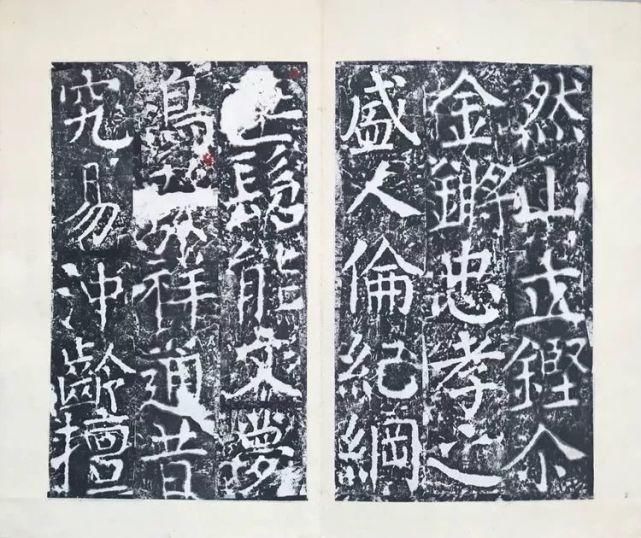 然山立鏗尒
金鏘忠孝之
盛人倫紀綱
髫能文夢
鳥祥昔
究易沖齡擅